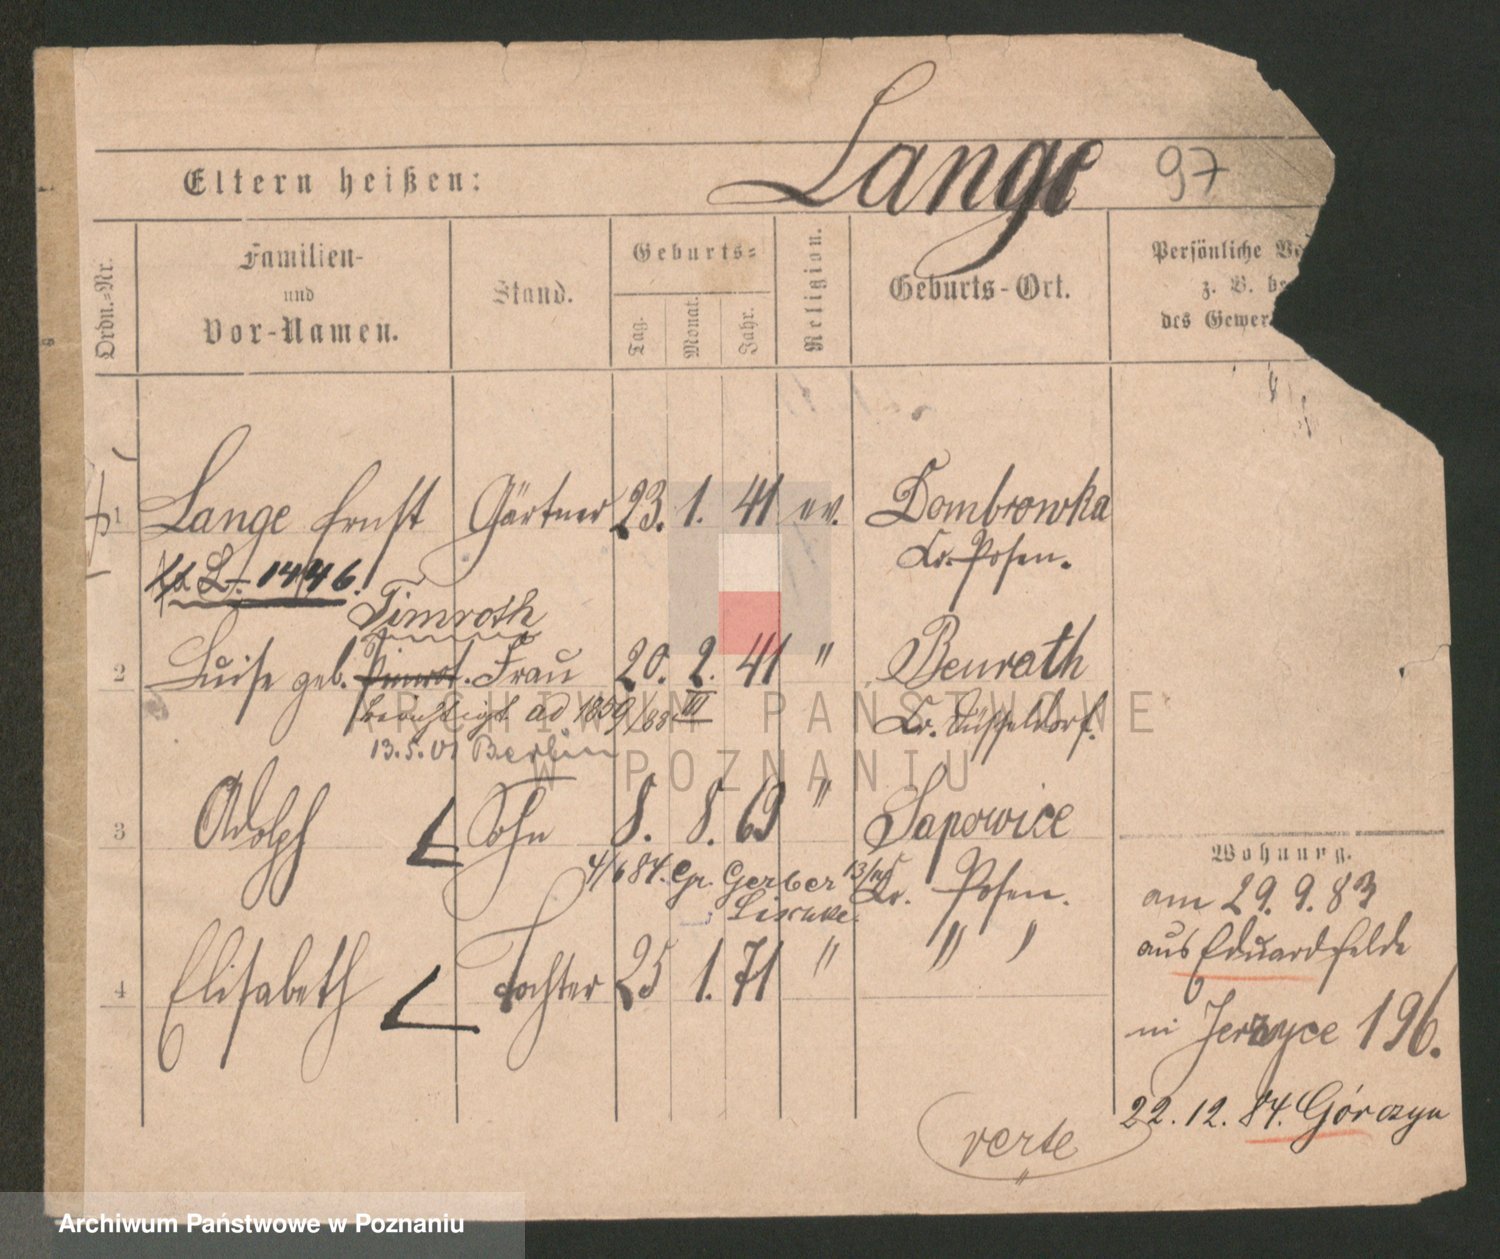 Lange 97
Eltern heißen:
Ordn.=Nr.
Familien-
und
Vor-Namen.
Stand.
Geburts=
Tag.
Monat.
Jahr.
Religion.
Geburts-Ort.
Persönliche
z. B. be
des Gewer
1 Lange Ernst Gärtner 23. 1. 41 ev. Dombrowka
Kr. Posen.
L. 1446.
Timroth
2 Luise geb. Frau 20. 2. 41 " Benrath
berichtigt ad 1859/88 III Kr. Düsseldorf.
13.5.01 Berlin
3 Adolph Sohn 8. 8. 69 " Sapowice
4/6 84. Gr. Gerber Kr. Posen.
4 Elisabeth Tochter 25 1. 71 " " "
Wohnung.
am 29. 9. 83
aus Eduardsfelde
in Jerzyce 196.
22. 12. 84. Górczyn
verte
ARCHIWUM PAŃSTWOWE
W POZNANIU
Archiwum Państwowe w Poznaniu